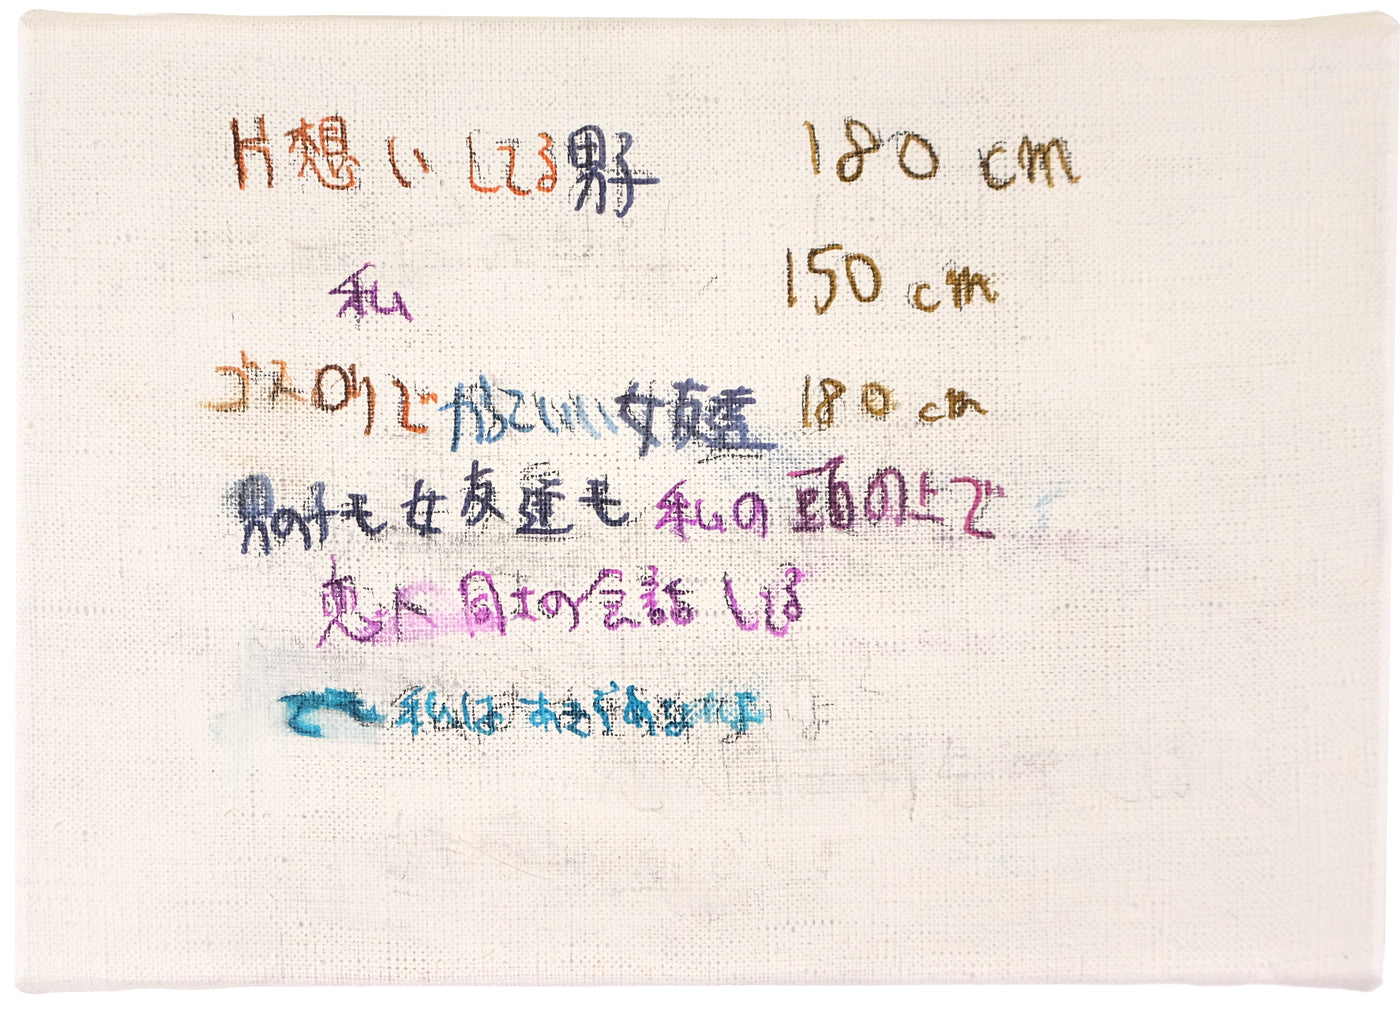 片想いしてる男子 180cm
私 150cm
ゴスロリでかっこいい女友達 180cm
男の子も女友達も私の頭の上で
恋人同士の会話してる
でも私はあきらめないよ